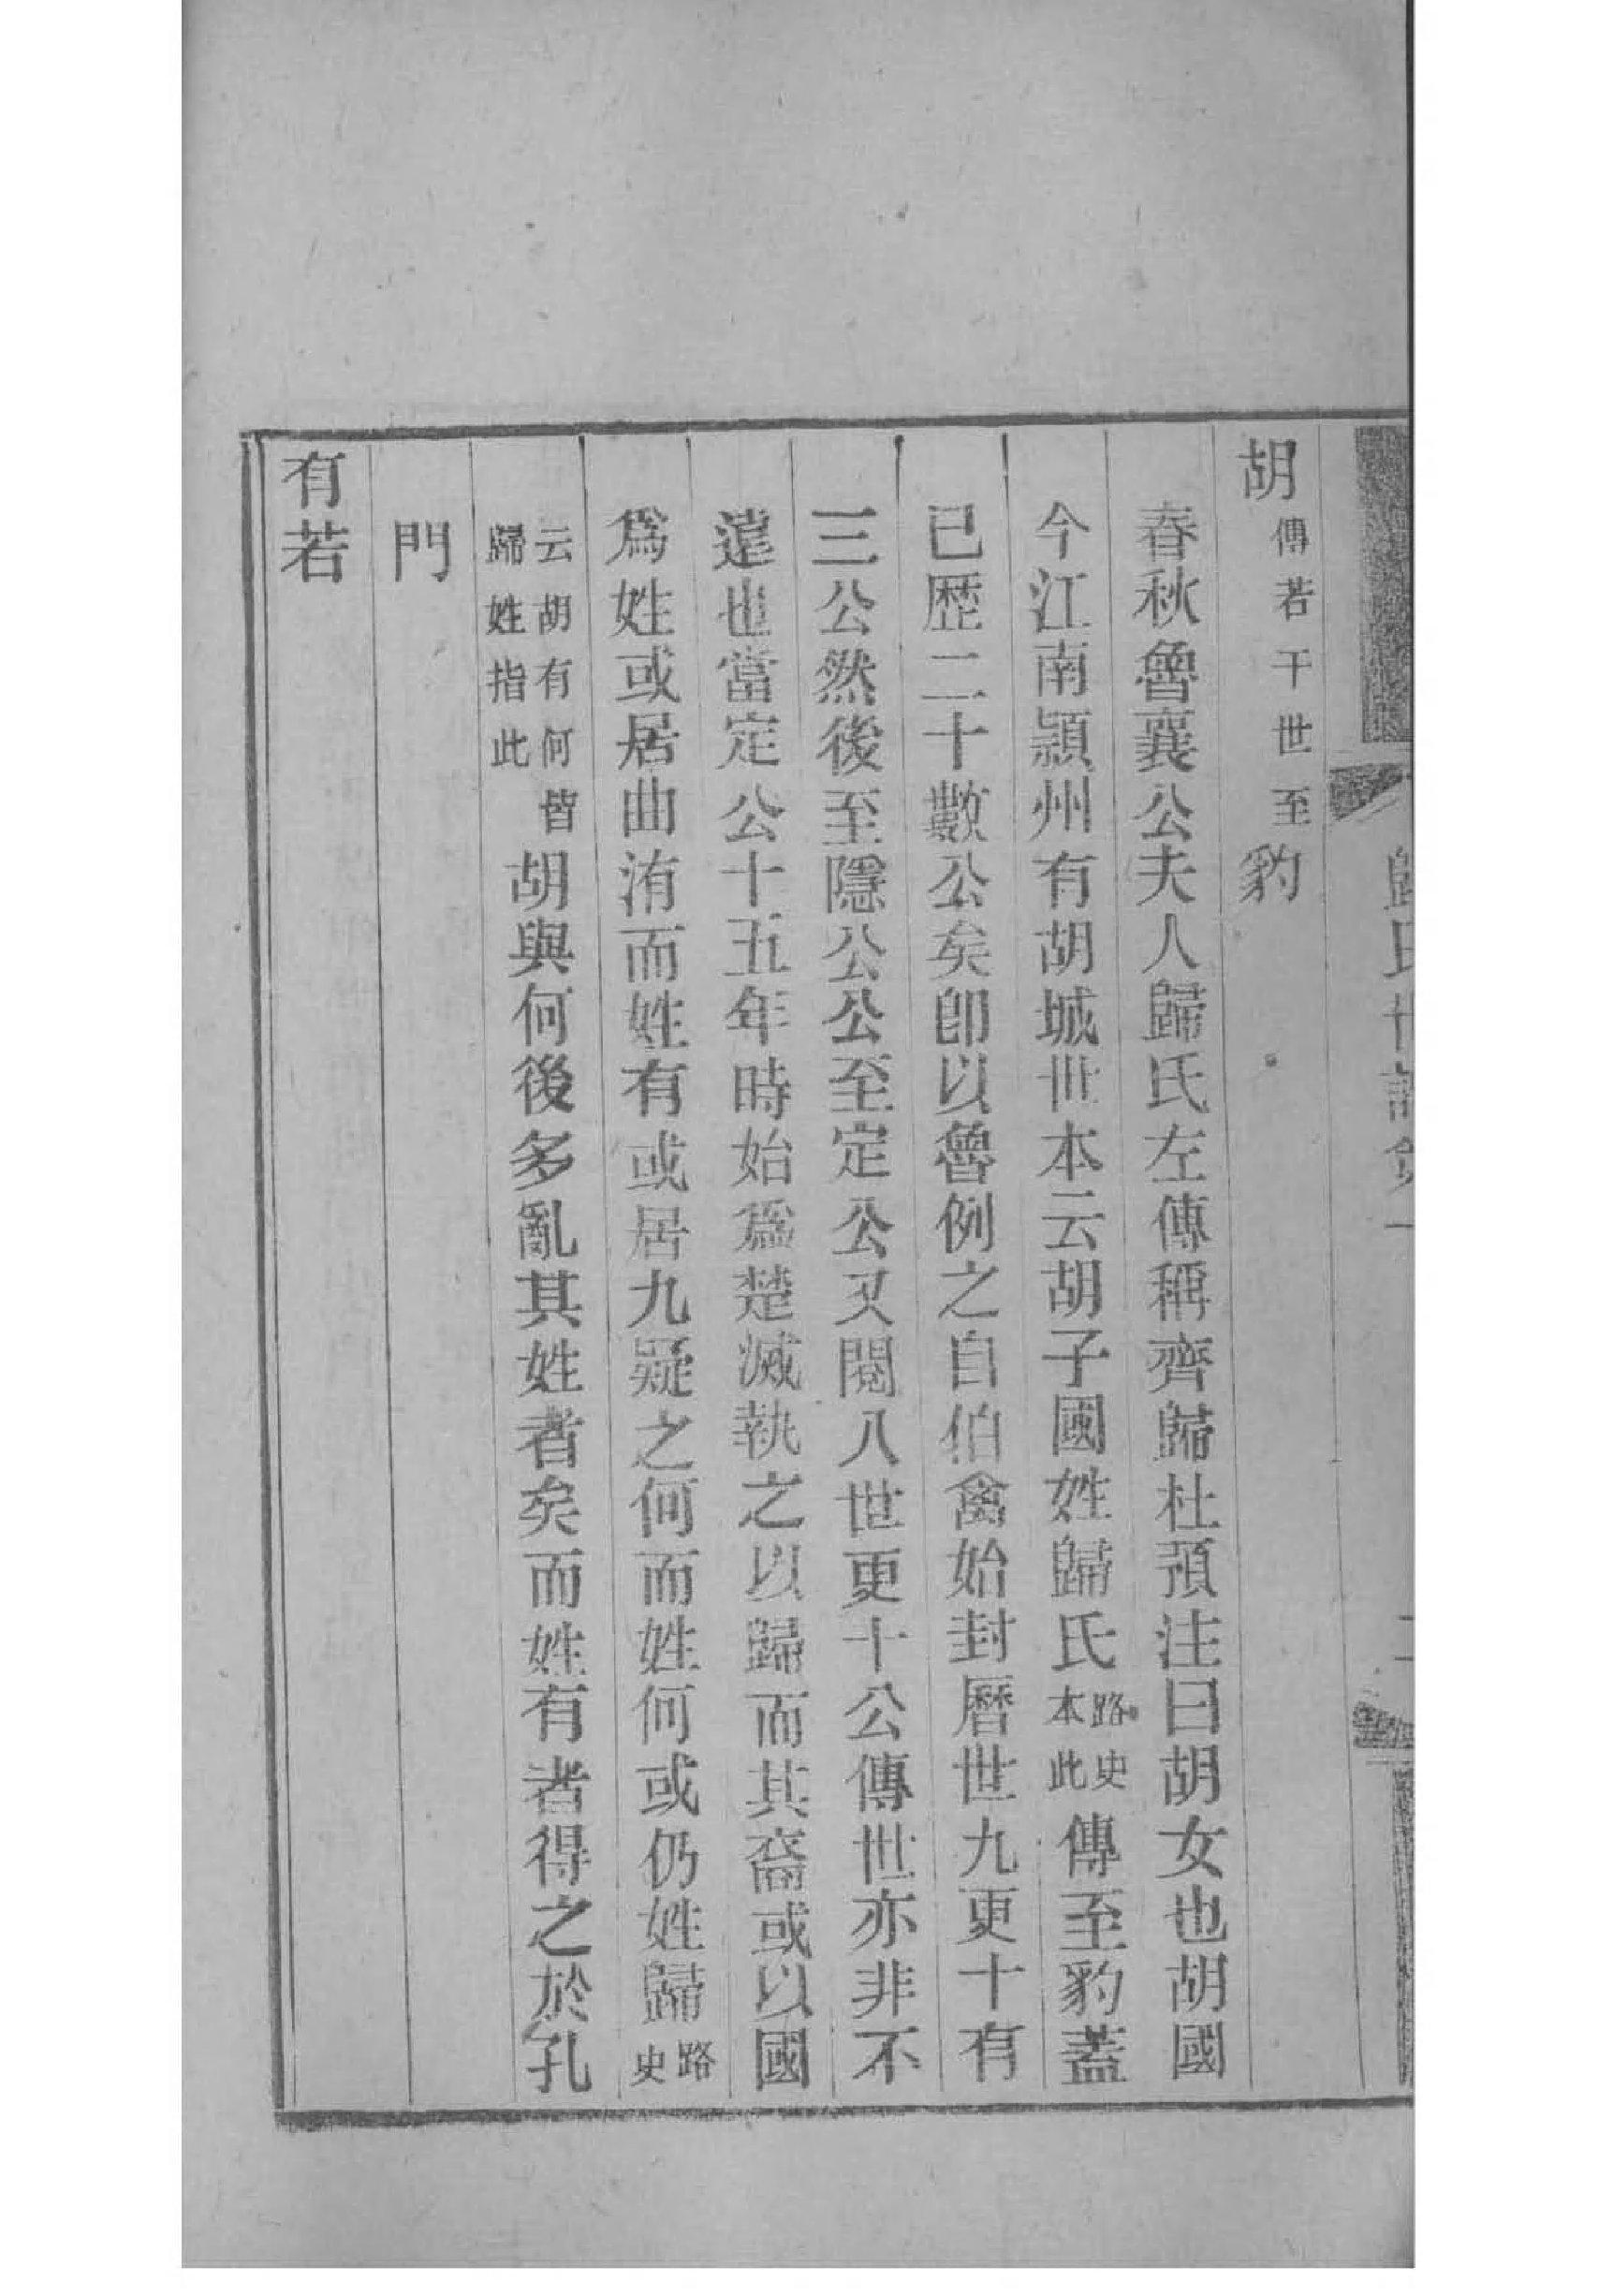 胡傳若干世至豹
春秋魯襄公夫人歸氏左傳稱齊歸杜預注曰胡女也胡國
今江南潁州有胡城世本云胡子國姓歸氏路史本此傳至豹蓋
已歷二十數公矣卽以魯例之自伯禽始封曆世九更十有
三公然後至隱公公至定公又閱八世更十公傳世亦非不
遠也當定公十五年時始爲楚滅執之以歸而其裔或以國
爲姓或居曲洧而姓有或居九疑之何而姓何或仍姓歸路史
云胡有何皆歸姓指此胡與何後多亂其姓者矣而姓有者得之於孔
門
有若